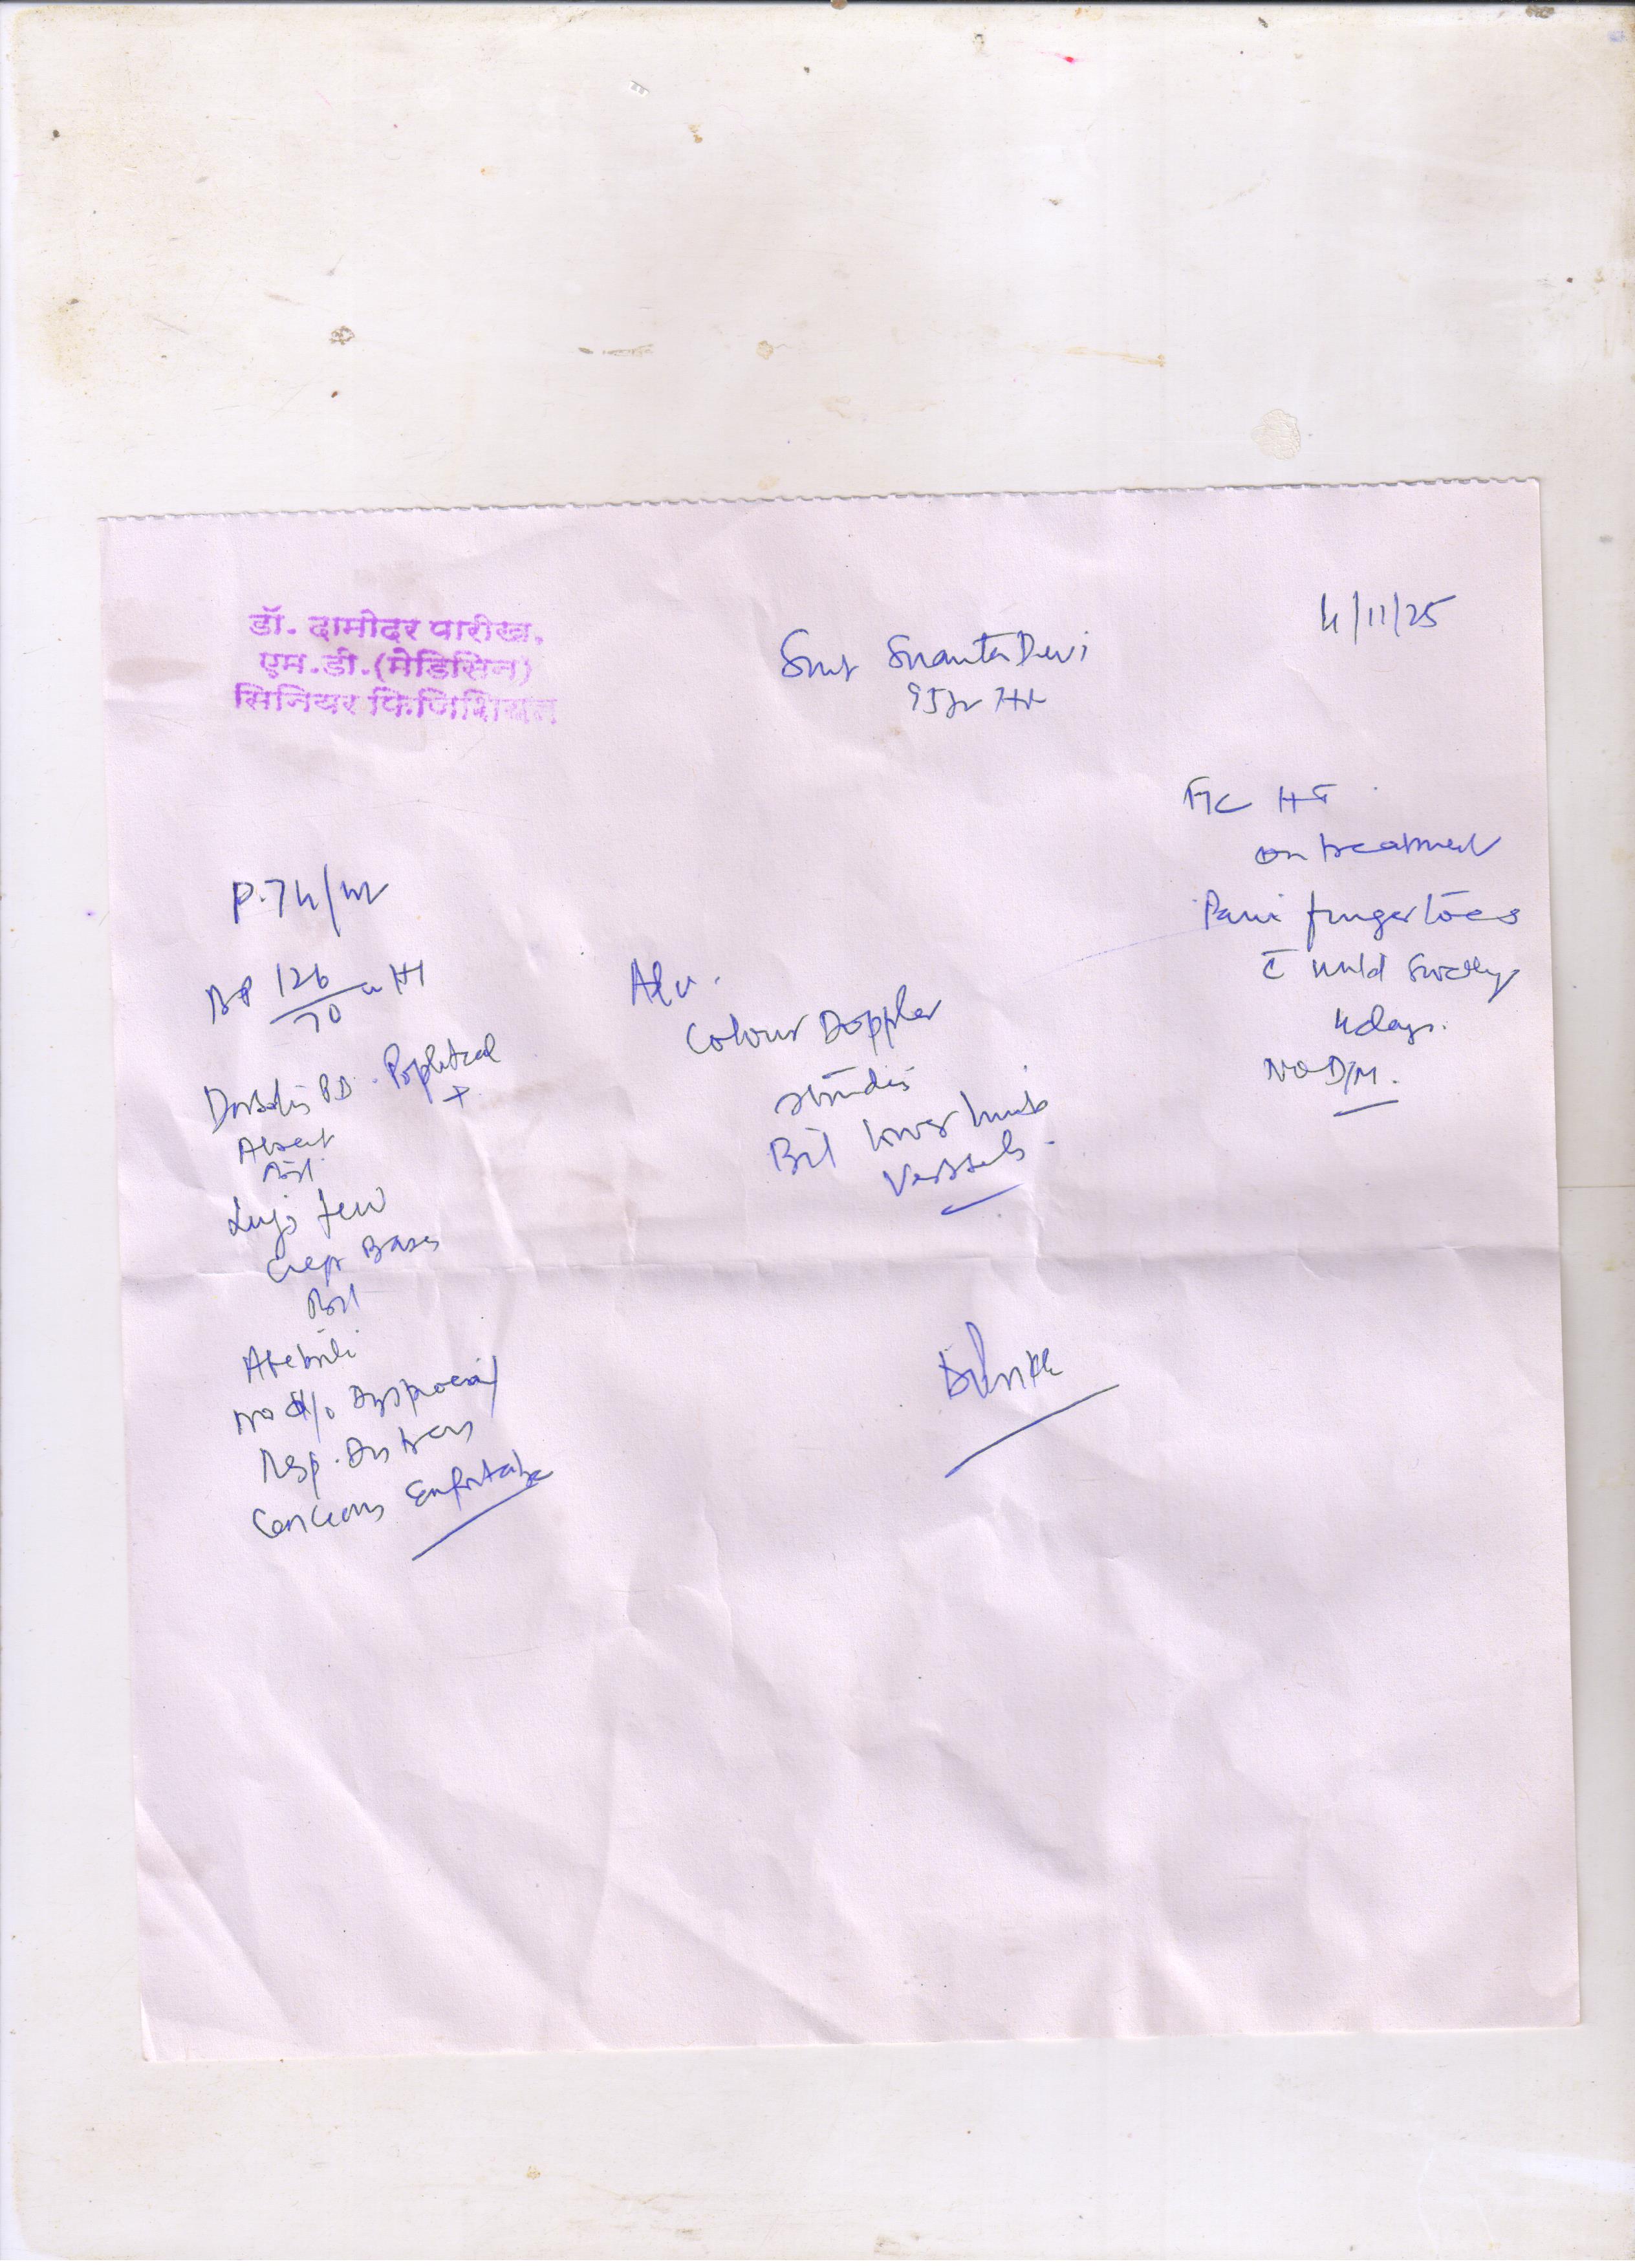 डॉ. दामोदर पारीख.
एम.डी.(मेडिसिन)
सिनियर फिजिशियन
4/11/25
Smt Devi
95yr
HT
on treatment
Pain finger toes
c̄ mild swelling
4 days.
NO D/M.
P. 74/m
BP 126/70
Dorsalis PD. Popliteal
+
Absent
Lungs few
Creps Bases
Afebrile
No Dyspnoea/
Resp. Distress
Concious Comfortable
Adv.
Colour Doppler
studies
Bil lower limb
Vessels.